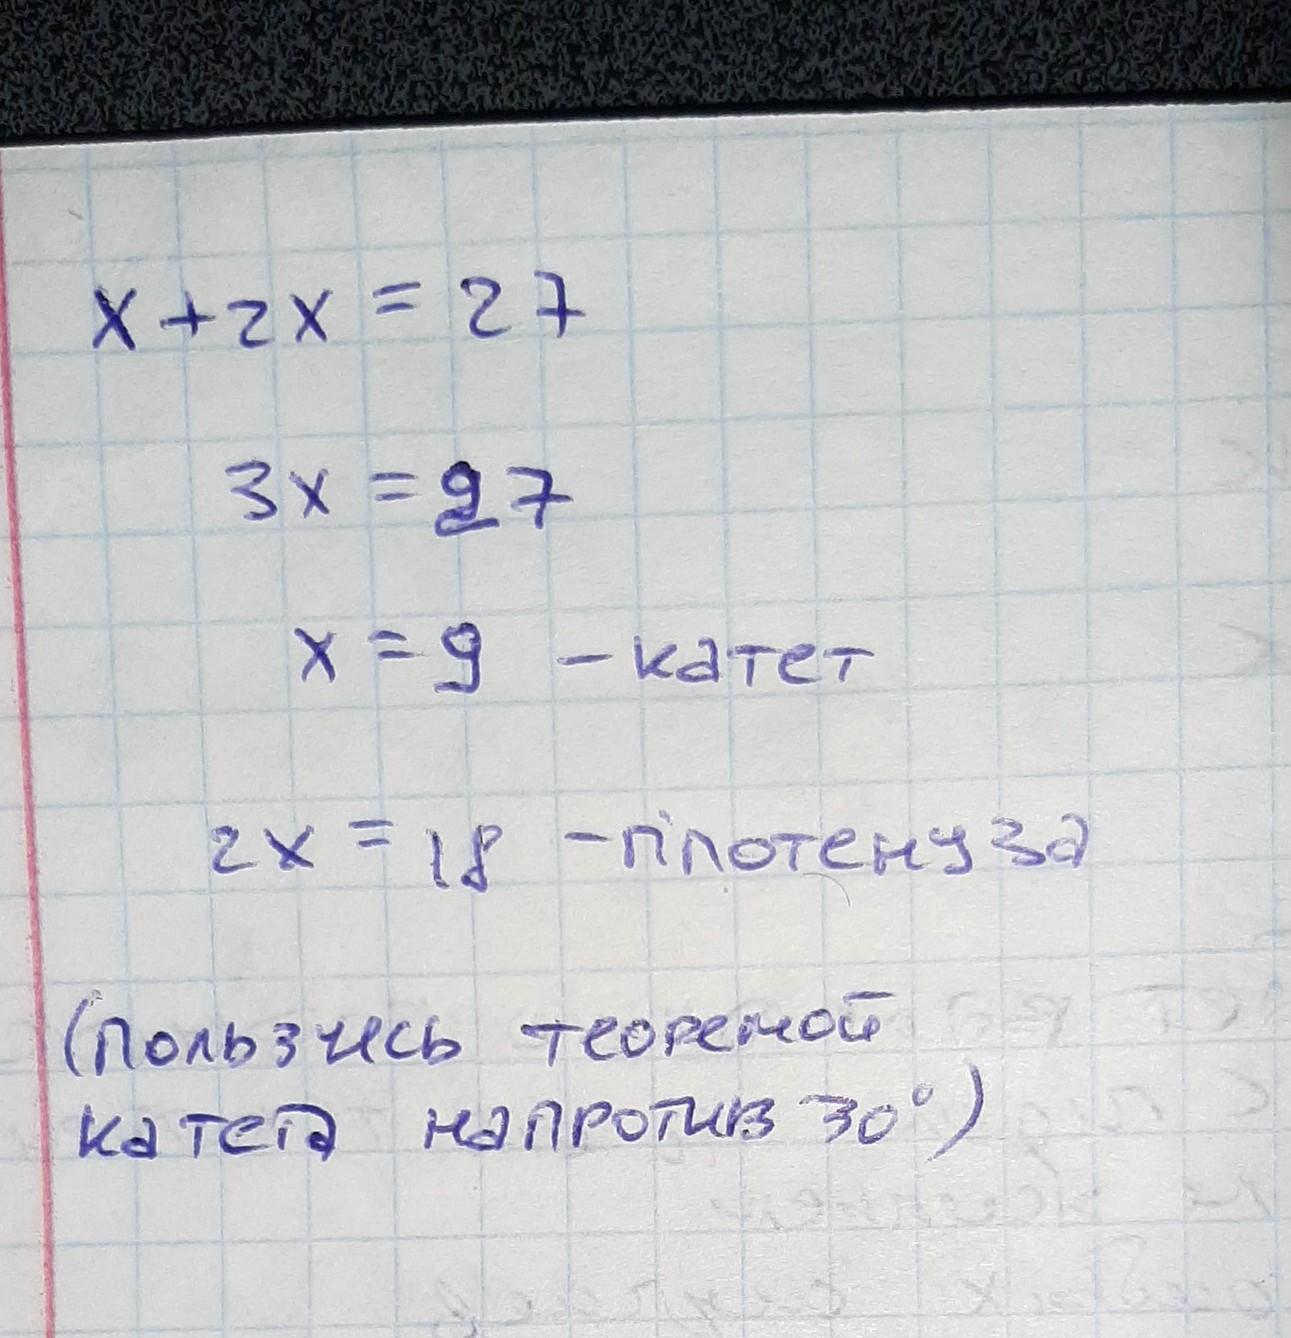 x+2x=27
3x=27
x=9 -катет
2x=18 -гіпотенуза
(Пользуись теоремой
катета напротив 30°)